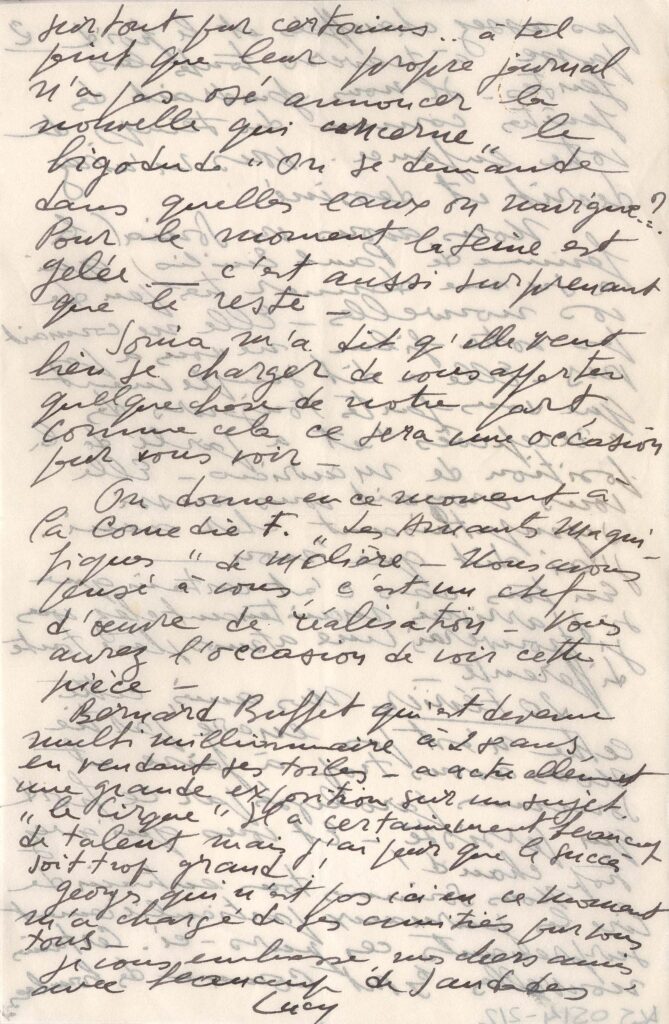 surtout pur certains... à tel
point que leur propre journal
n'a pas osé annoncer la
nouvelle qui concerne "le
bigodudo" On se demande
dans quelles eaux on navigue..?
Pour le moment la Seine est
gelée — c'est aussi surprenant
que le reste —
Sonia m'a dit qu'elle veut
bien se charger de vous apporter
quelque chose de notre part
comme cela ce sera une occasion
pur vous voir —
On donne en ce moment à
la Comedie F. "Les Amants Magni-
fiques" de Molière — Nous avons
pensé à vous c'est un chef
d'œuvre de réalisation — Vous
aurez l'occasion de voir cette
pièce —
Bernard Buffet qui est devenu
multimillionnaire à 28 ans
en vendant ses toiles — a actuellement
une grande exposition sur un sujet
"le Cirque" Il a certainement beaucoup
de talent mais j'ai peur que le succès
soit trop grand !
Georges qui n'est pas ici en ce moment
m'a chargé de ses amitiés pur vous
tous —
Je vous embrasse mes chers amis
avec beaucoup de Saudades.
Lucy
AS 0514-212